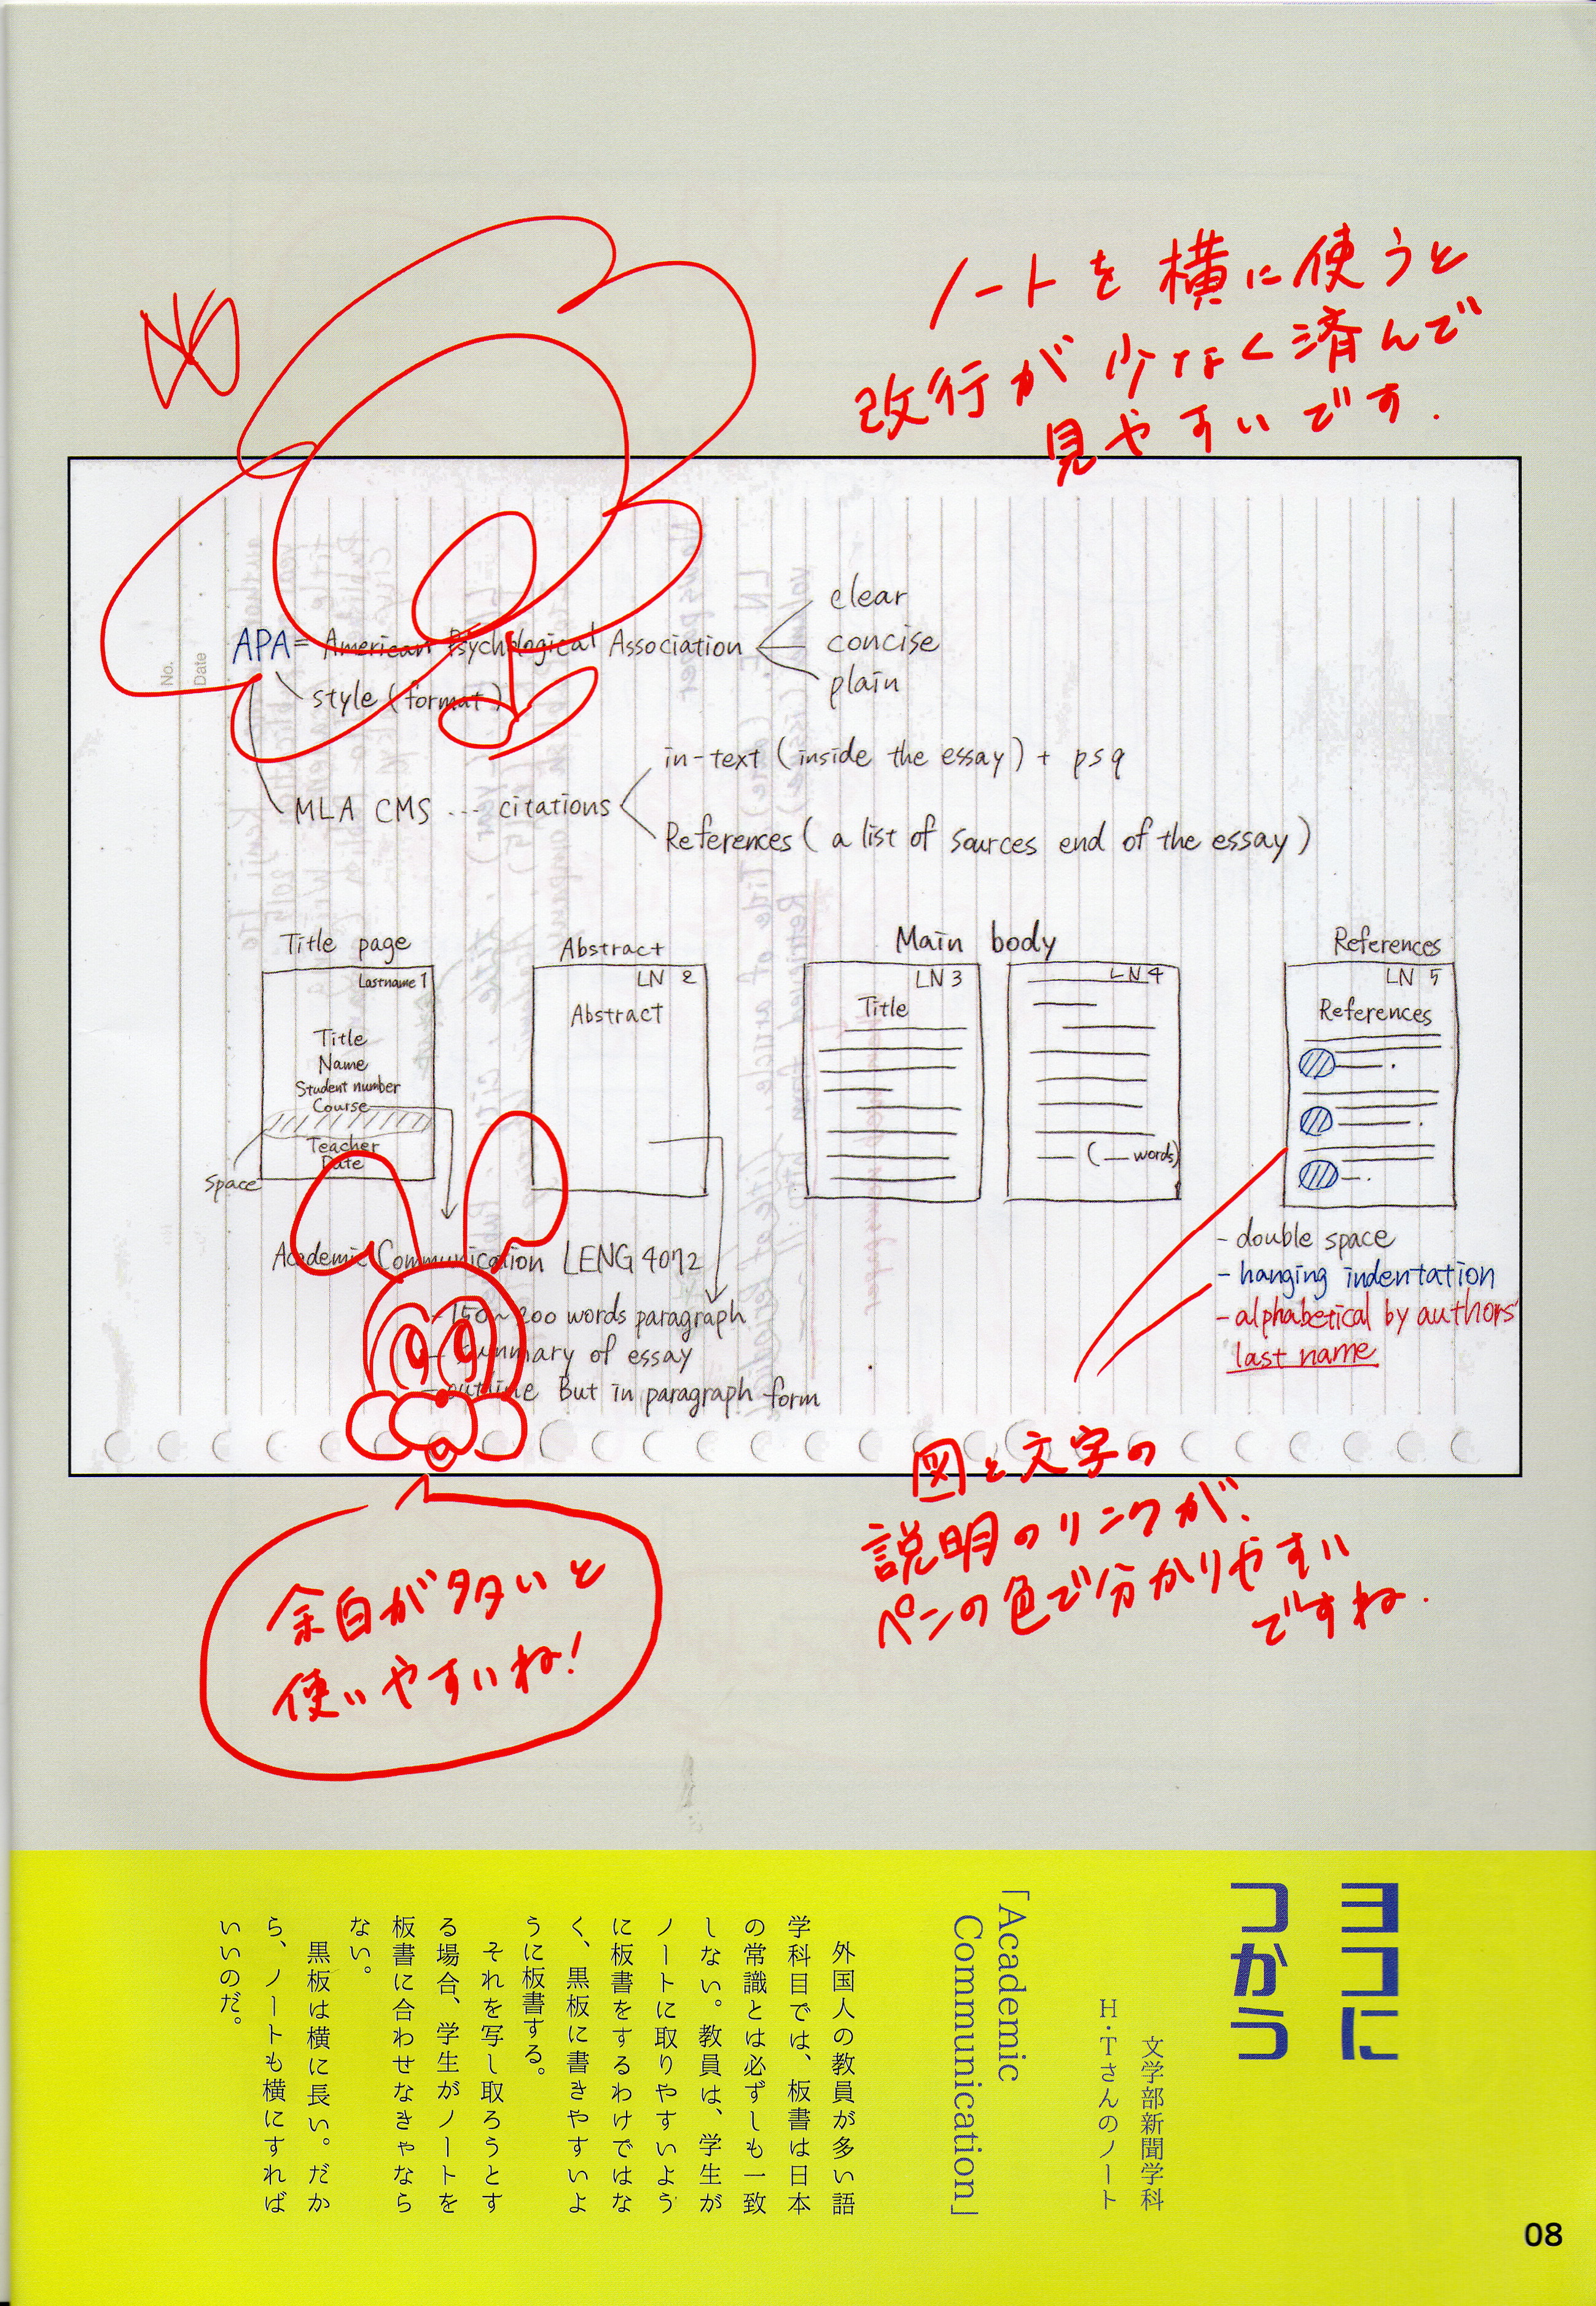 ノートを横に使うと
改行が少なく済んで
見やすいです.
No.
Date
APA = American Psychological Association
clear
concise
plain
style (format)
MLA CMS ... citations
in-text (inside the essay) + psq
References ( a list of sources end of the essay )
Title page
Lastname 1
Title
Name
Student number
Course
Teacher
Date
Space
Abstract
LN 2
Abstract
Main body
LN 3
Title
LN 4
( — words)
References
LN 5
References
Academic Communication LENG 4072
- 150~200 words paragraph
- summary of essay
- outline But in paragraph form
- double space
- hanging indentation
- alphabetical by authors'
last name
図と文字の
説明のリンクが、
ペンの色で分かりやすい
ですね.
余白が多いと
使いやすいね!
ヨコに
つかう
文学部新聞学科
H・Tさんのノート
「Academic
Communication」
外国人の教員が多い語
学科目では、板書は日本
の常識とは必ずしも一致
しない。教員は、学生が
ノートに取りやすいよう
に板書をするわけではな
く、黒板に書きやすいよ
うに板書する。
それを写し取ろうとす
る場合、学生がノートを
板書に合わせなきゃなら
ない。
黒板は横に長い。だか
ら、ノートも横にすれば
いいのだ。
08